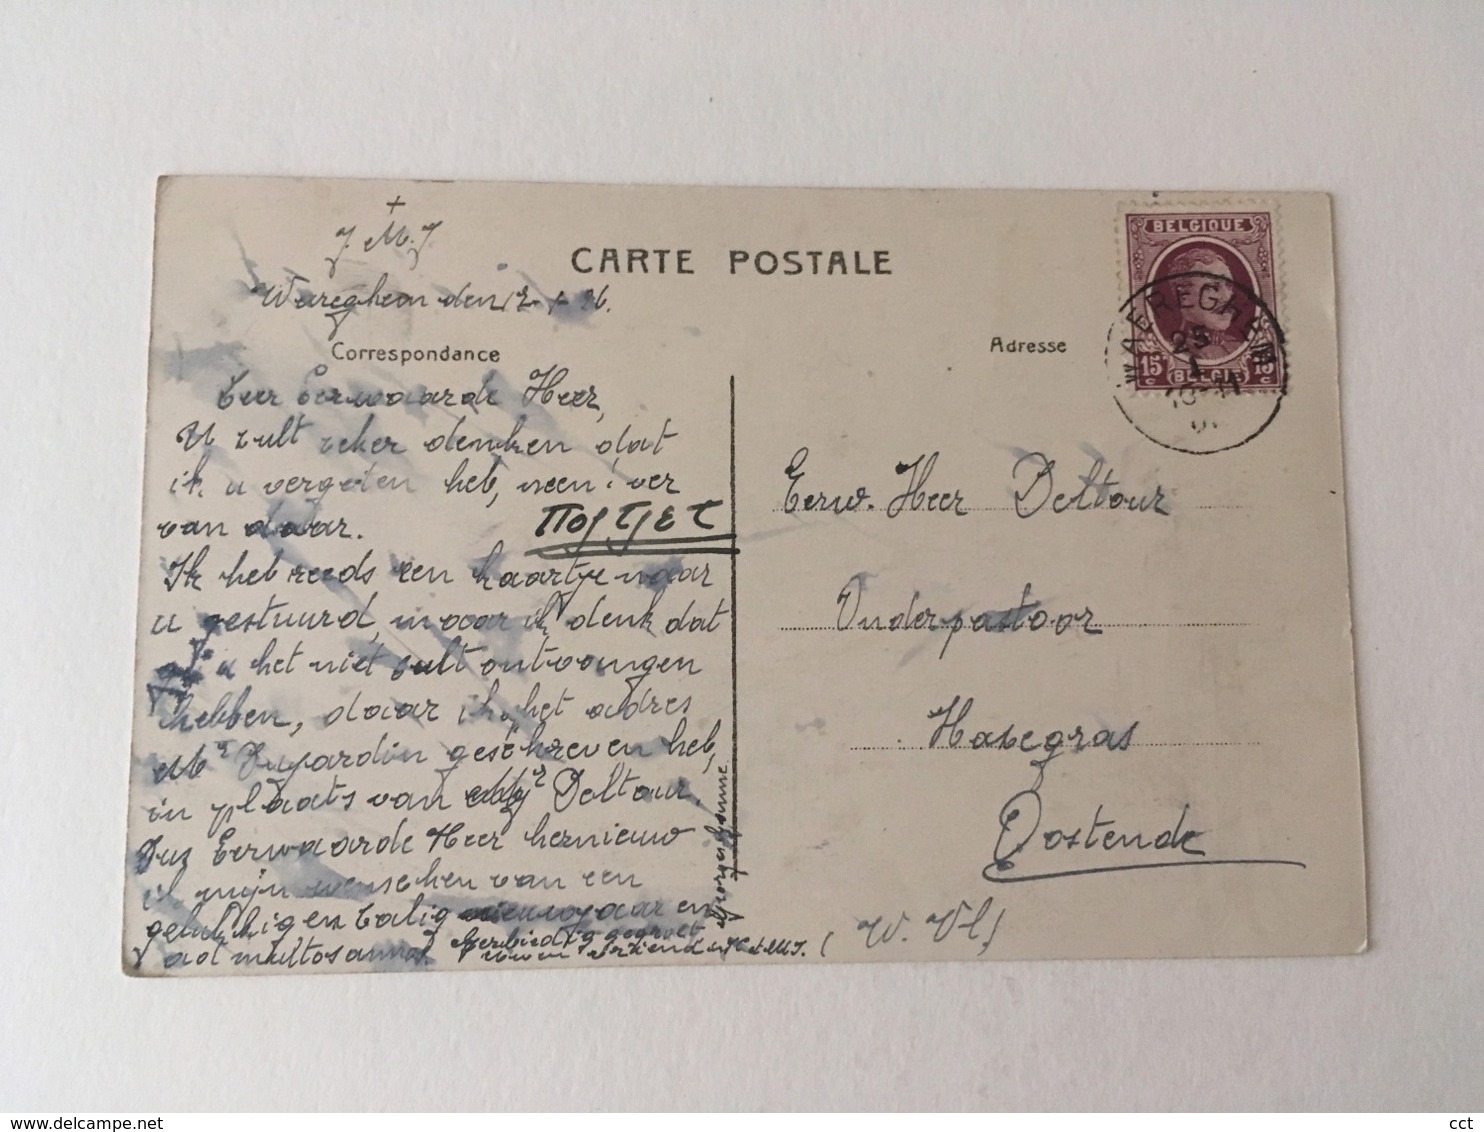 +
J. M. J
CARTE POSTALE
Waereghem den 12 - 1 - 26.
Correspondance
Zeer Eerwaarde Heer,
U zult zeker denken dat
ik u vergeten heb, neen! ver
van daar.
Ik heb reeds een kaartje naar
u gestuurd, maar ik denk dat
u het niet zult ontvangen
hebben, daar ik het adres
Mr Dujardin geschreven heb,
in plaats van Mr Deltour.
Dus Eerwaarde Heer hernieuw
ik mijn wenschen van een
gelukkig en zalig nieuwjaar en
ad multos annos.
Eerbiedig gegroet
Georges
BELGIQUE
15 c
BELGIE
15 c
WAEREGHEM
25
1
Adresse
Eerw. Heer Deltour
Onderpastoor
Hasegras
Oostende
(W. Vl)
delcampe.net
cct